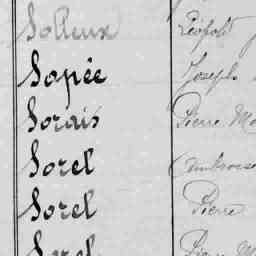 Solleux Léopold
Sapée Joseph
Sorais Pierre
Sorel Ambroise
Sorel Pierre
Sorel Pierre